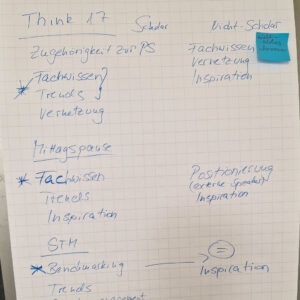 Think 17
Scholar
Nicht-Scholar
Zugehörigkeit zur PS
Fachwissen
Vernetzung
Inspiration
* Fachwissen
Trends
Vernetzung
Mittagspause
* Fachwissen
Trends
Inspiration
Positionierung
(externe Speaker)
Inspiration
STM
* Benchmarking
=
Inspiration
Trends